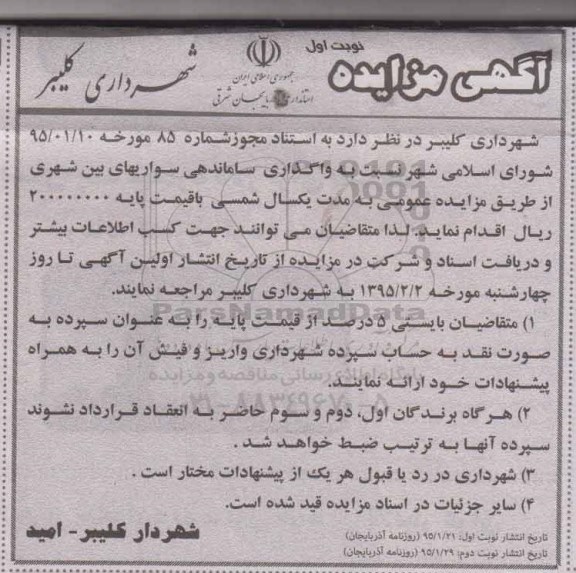 نوبت اول
آگهی مزایده
جمهوری اسلامی ایران
استانداری آذربایجان شرقی
شهرداری کلیبر
شهرداری کلیبر در نظر دارد به استناد مجوزشماره ۸۵ مورخه ۹۵/۰۱/۱۰
شورای اسلامی شهر نسبت به واگذاری ساماندهی سواریهای بین شهری
از طریق مزایده عمومی به مدت یکسال شمسی باقیمت پایه ۲۰۰۰۰۰۰۰۰
ریال اقدام نماید. لذا متقاضیان می توانند جهت کسب اطلاعات بیشتر
و دریافت اسناد و شرکت در مزایده از تاریخ انتشار اولین آگهی تا روز
چهارشنبه مورخه ۱۳۹۵/۲/۲ به شهرداری کلیبر مراجعه نمایند.
ParsNamadData
۱) متقاضیان بایستی ۵ درصد از قیمت پایه را به عنوان سپرده به
صورت نقد به حساب سپرده شهرداری واریز و فیش آن را به همراه
پایگاه اطلاع رسانی مناقصه و مزایده
پیشنهادات خود ارائه نمایند.
۰۲۱-۸۸۳۴۹۶۷۰-۵
۲) هرگاه برندگان اول، دوم و سوم حاضر به انعقاد قرارداد نشوند
سپرده آنها به ترتیب ضبط خواهد شد .
۳) شهرداری در رد یا قبول هر یک از پیشنهادات مختار است .
۴) سایر جزئیات در اسناد مزایده قید شده است.
تاریخ انتشار نوبت اول: ۹۵/۱/۲۱ (روزنامه آذربایجان)
تاریخ انتشار نوبت دوم: ۹۵/۱/۲۹ (روزنامه آذربایجان)
شهردار کلیبر- امید